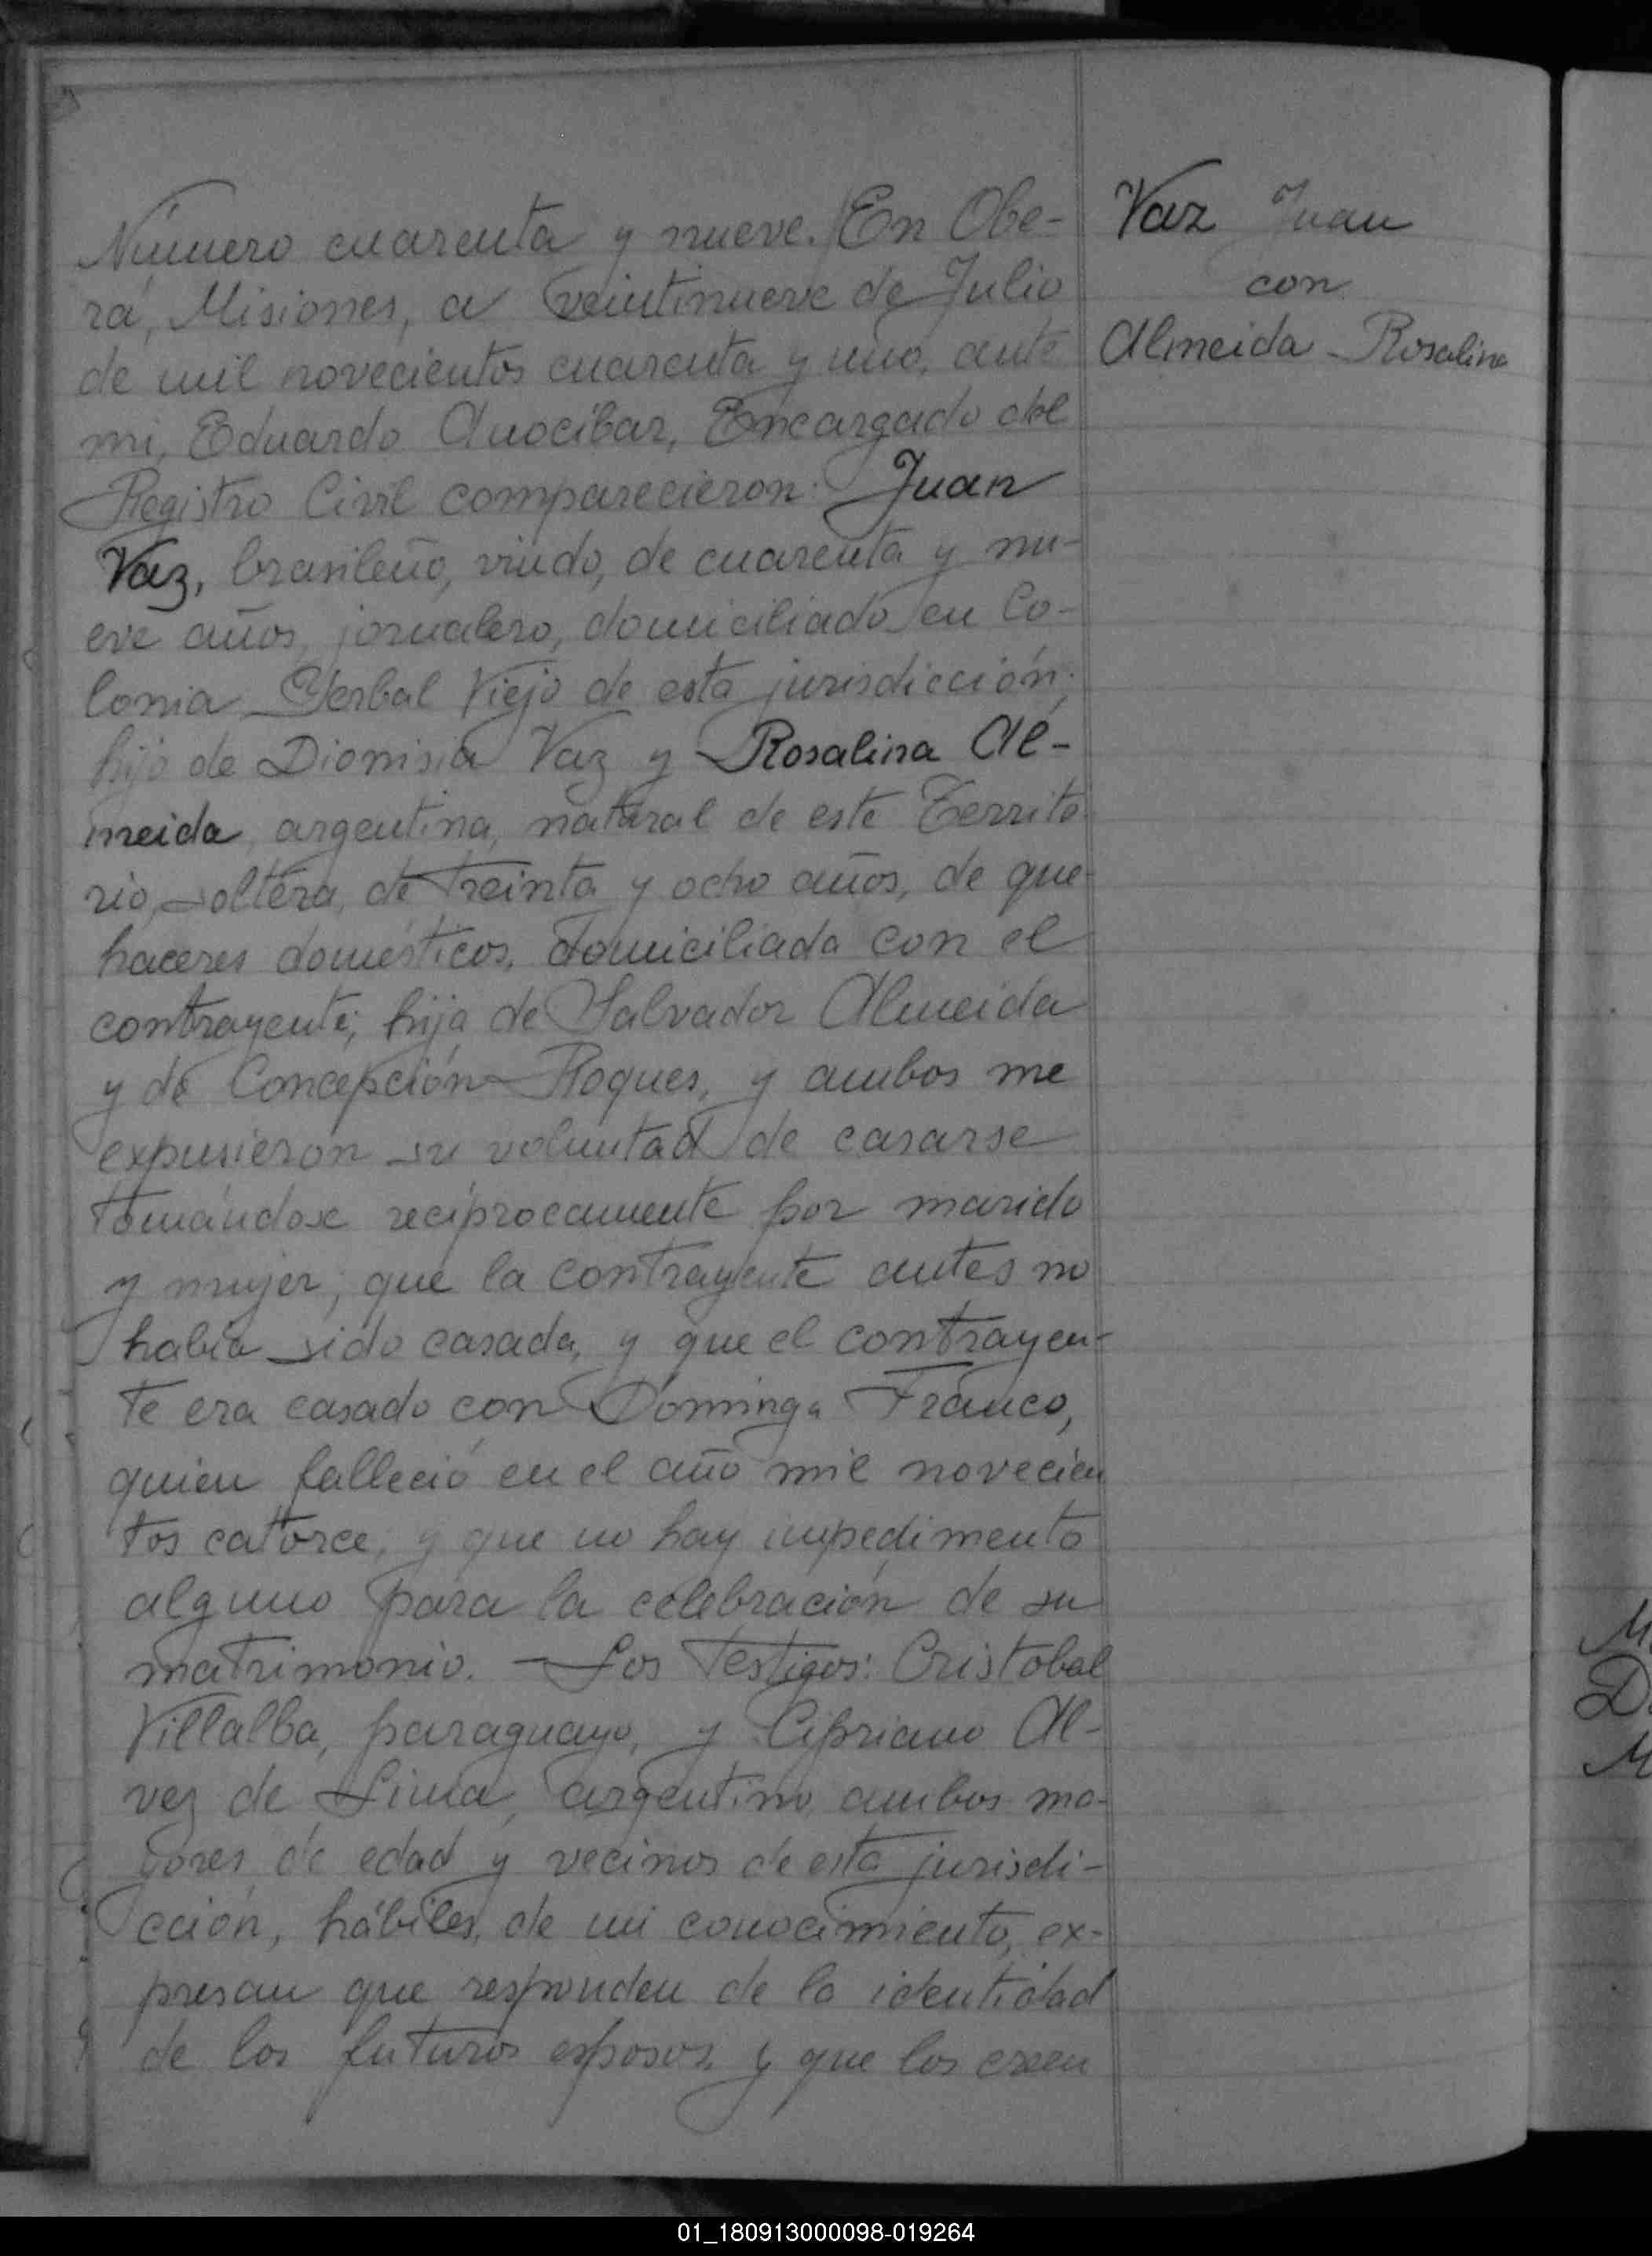 Número cuarenta y nueve. / En Obe-
rá, Misiones, a veintinueve de Julio
de mil novecientos cuarenta y uno, ante
mi, Eduardo Anocibar, Encargado del
Registro Civil comparecieron: Juan
Vaz, brasileño, viudo, de cuarenta y nu-
eve años, jornalero, domiciliado en Co-
lonia Yerbal Viejo de esta jurisdicción;
hijo de Dionisia Vaz y Rosalina Al-
meida, argentina, natural de este Territo-
rio, soltera, de treinta y ocho años, de que-
haceres domésticos, domiciliada con el
contrayente; hija de Salvador Almeida
y de Concepción Roques, y ambos me
expusieron su voluntad de casarse
tomándose recíprocamente por marido
y mujer; que la contrayente antes no
había sido casada, y que el contrayen-
te era casado con Dominga Franco,
quien falleció en el año mil novecien
tos catorce, y que no hay impedimento
alguno para la celebración de su
matrimonio. — Los testigos: Cristobal
Villalba, paraguayo, y Cipriano Al-
vez de Lima, argentino, ambos ma-
yores de edad y vecinos de esta jurisdi-
cción, hábiles, de mi conocimiento, ex-
presan que responden de la identidad
de los futuros esposos y que los creen
Vaz Juan
con
Almeida Rosalina
M
D
M
01_180913000098-019264